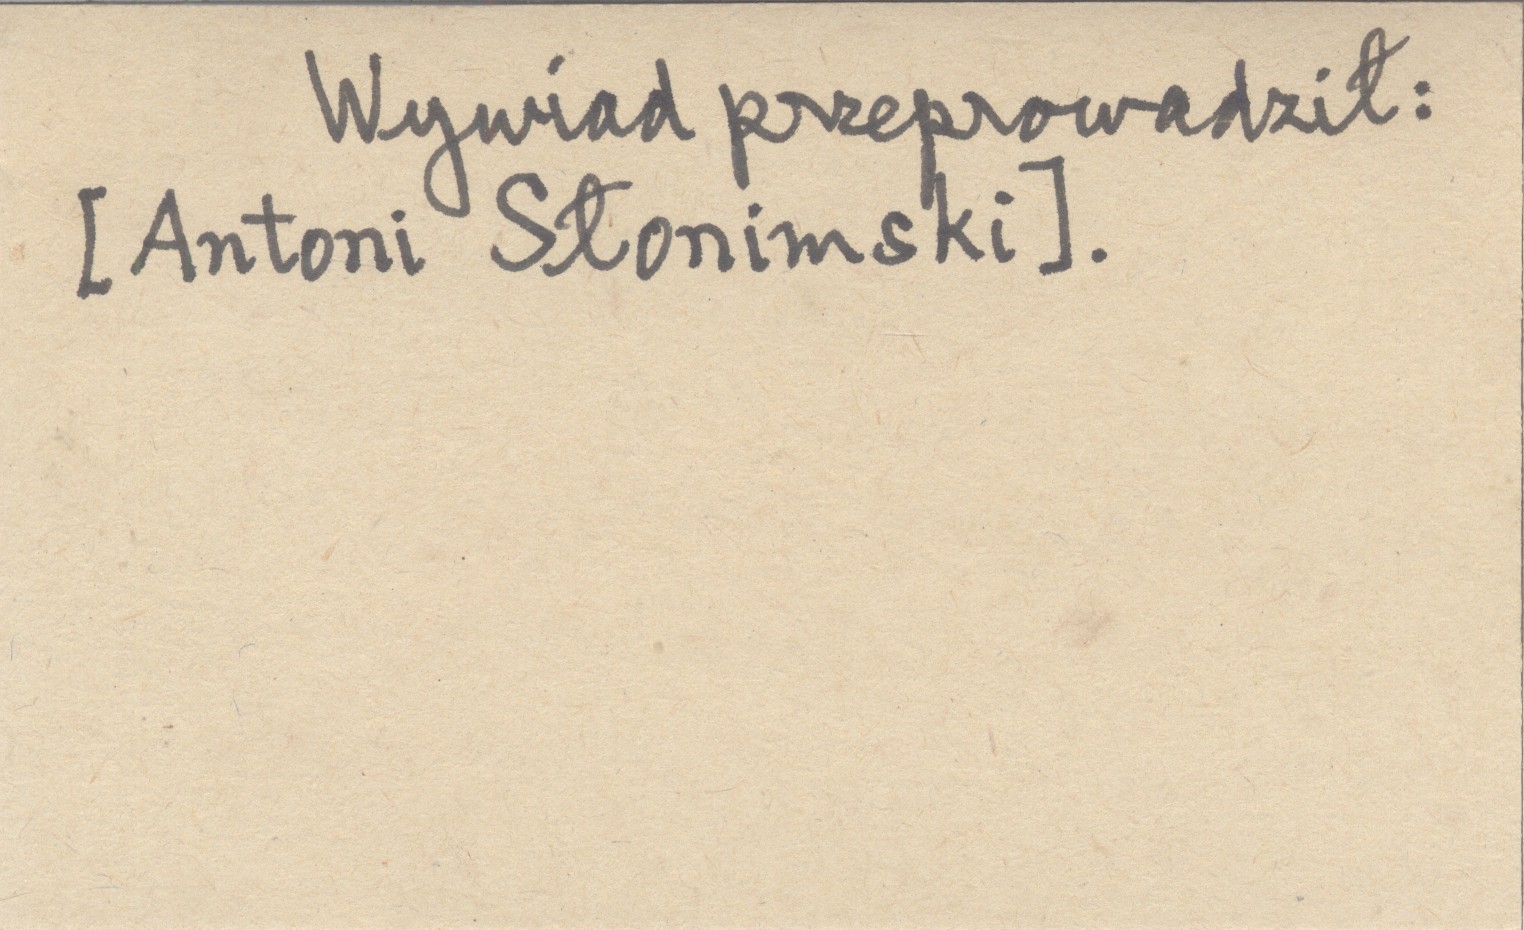 Wywiad przeprowadził:
[Antoni Słonimski].